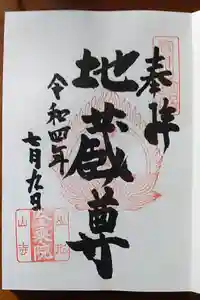 奉拝
地蔵尊
令和四年
七月九日
山寺